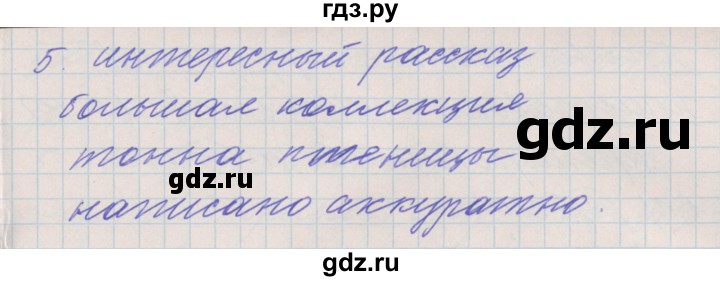 гдз.ру
5. интересный рассказ
большая коллекция
gdz.ru
тонна пшеницы
gdz.ru
написано аккуратно.
gdz.ru